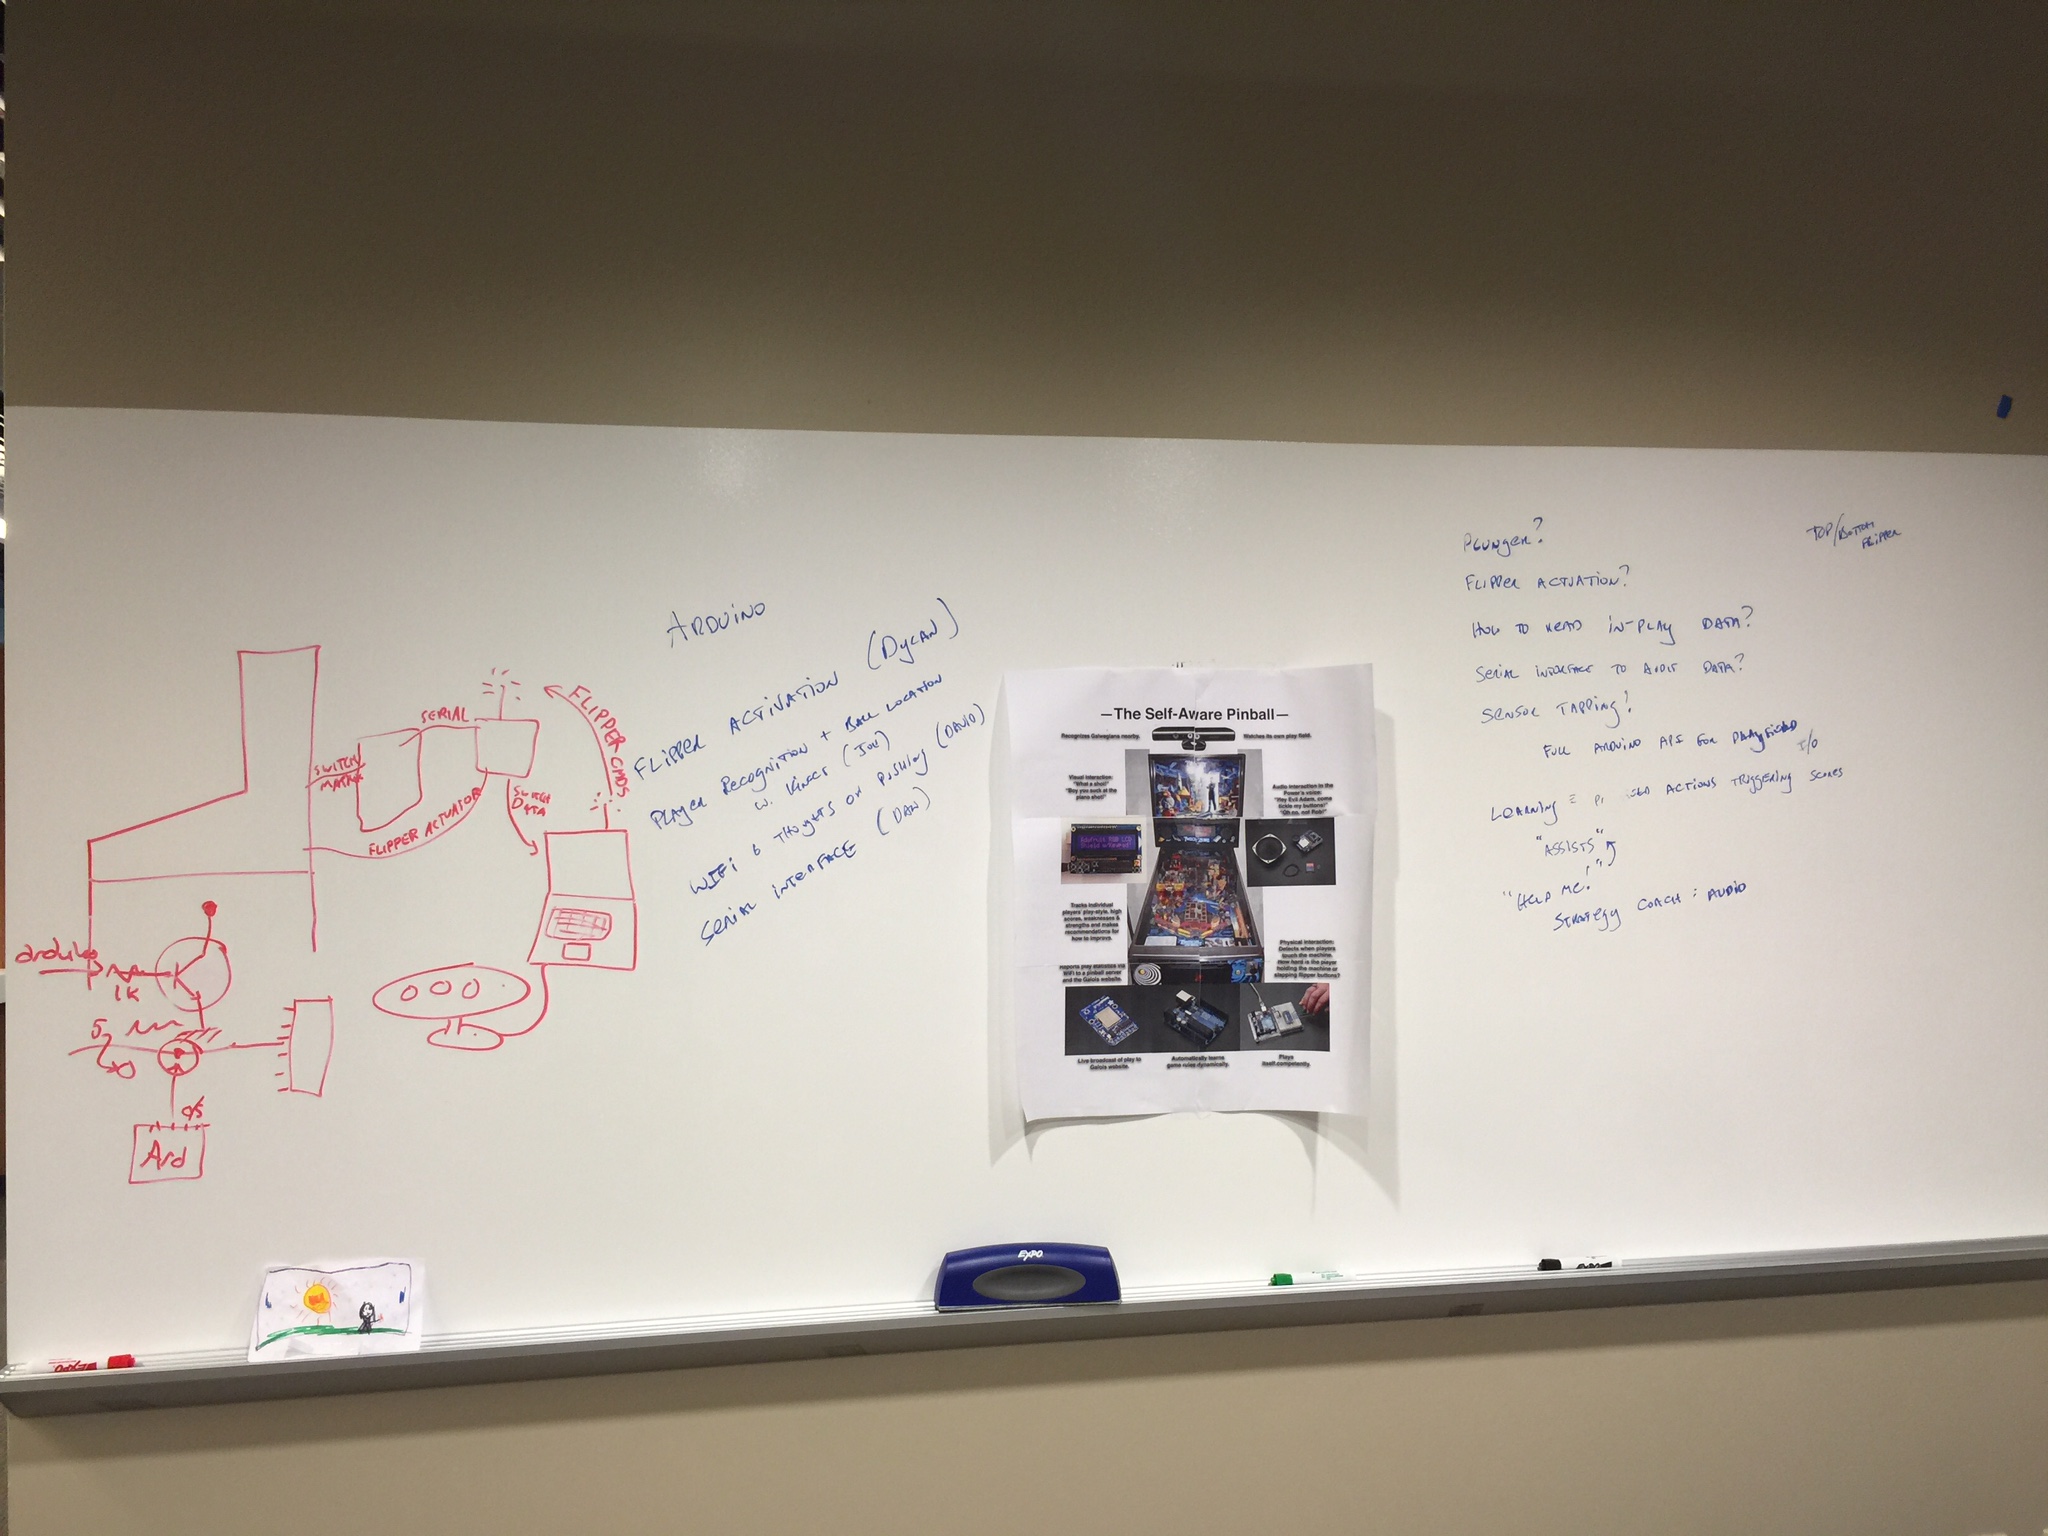 SWITCH
MATRIX
SERIAL
FLIPPER ACTUATOR
SWITCH
DATA
FLIPPER CMDS
arduino
1K
5
Ard
ARDUINO
FLIPPER ACTIVATION (DYLAN)
PLAYER RECOGNITION + BALL LOCATION
W. KINECT (JOE)
WIFI & THOUGHTS ON PUSHING (DAVID)
SERIAL INTERFACE (DAN)
—The Self-Aware Pinball—
Recognizes Galwegians nearby.
Watches its own play field.
Visual interaction:
"What a shot!"
"Boy you suck at the
piano shot!"
Audio interaction in the
Power's voice:
"Hey Evil Adam, come
tickle my buttons!"
"Oh no, not Pain!"
Tracks individual
players' play-style, high
scores, weaknesses &
strengths and makes
recommendations for
how to improve.
Physical interaction:
Detects when players
touch the machine.
How hard is the player
holding the machine or
slapping flipper buttons?
Reports play statistics via
WiFi to a pinball server
and the Galois website.
Live broadcast of play to
Galois website.
Automatically learns
game rules dynamically.
Plays
itself competently.
PLUNGER?
TOP/BOTTOM
FLIPPER
FLIPPER ACTUATION?
HOW TO READ IN-PLAY DATA?
SERIAL INTERFACE TO AUDIT DATA?
SENSOR TAPPING?
FULL ARDUINO API FOR PLAYFIELD I/O
LEARNING = ACTIONS TRIGGERING SCORES
"ASSISTS"
"HELP ME!"
STRATEGY COACH : AUDIO
EXPO